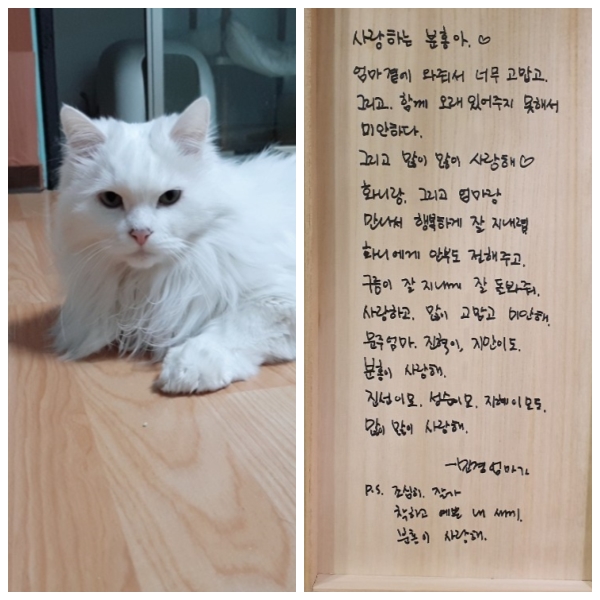 사랑하는 분홍아. ♡
엄마곁에 와줘서 너무 고맙고.
그리고. 함께 오래 있어주지 못해서
미안하다.
그리고 많이 많이 사랑해♡
화니랑, 그리고 엄마랑
만나서 행복하게 잘 지내렴
화니에게 안부도 전해주고,
구름이 잘 지내게 잘 돌봐줘.
사랑하고. 많이 고맙고 미안해.
문주엄마. 진혁이, 지만이도.
분홍이 사랑해.
진성이모. 성숙이모. 지혜이모도.
많이 많이 사랑해.
엄마가
P.S. 조심히. 잘가
착하고 예쁜 내 새끼.
분홍이 사랑해.